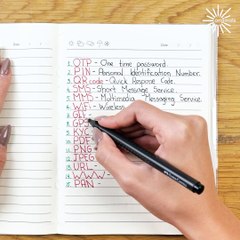 1. OTP - One time password.
2. PIN - Personal Identification Number.
3. QR code - Quick Response Code.
4. SMS - Short Message Service.
5. MMS - Multimedia Messaging Service.
6. WiFi - Wireless
7. GIF -
8. GPS
9. KYC
10. PDF
11. PNG
12. JPEG
13. URL -
14. WWW -
15. PAN -